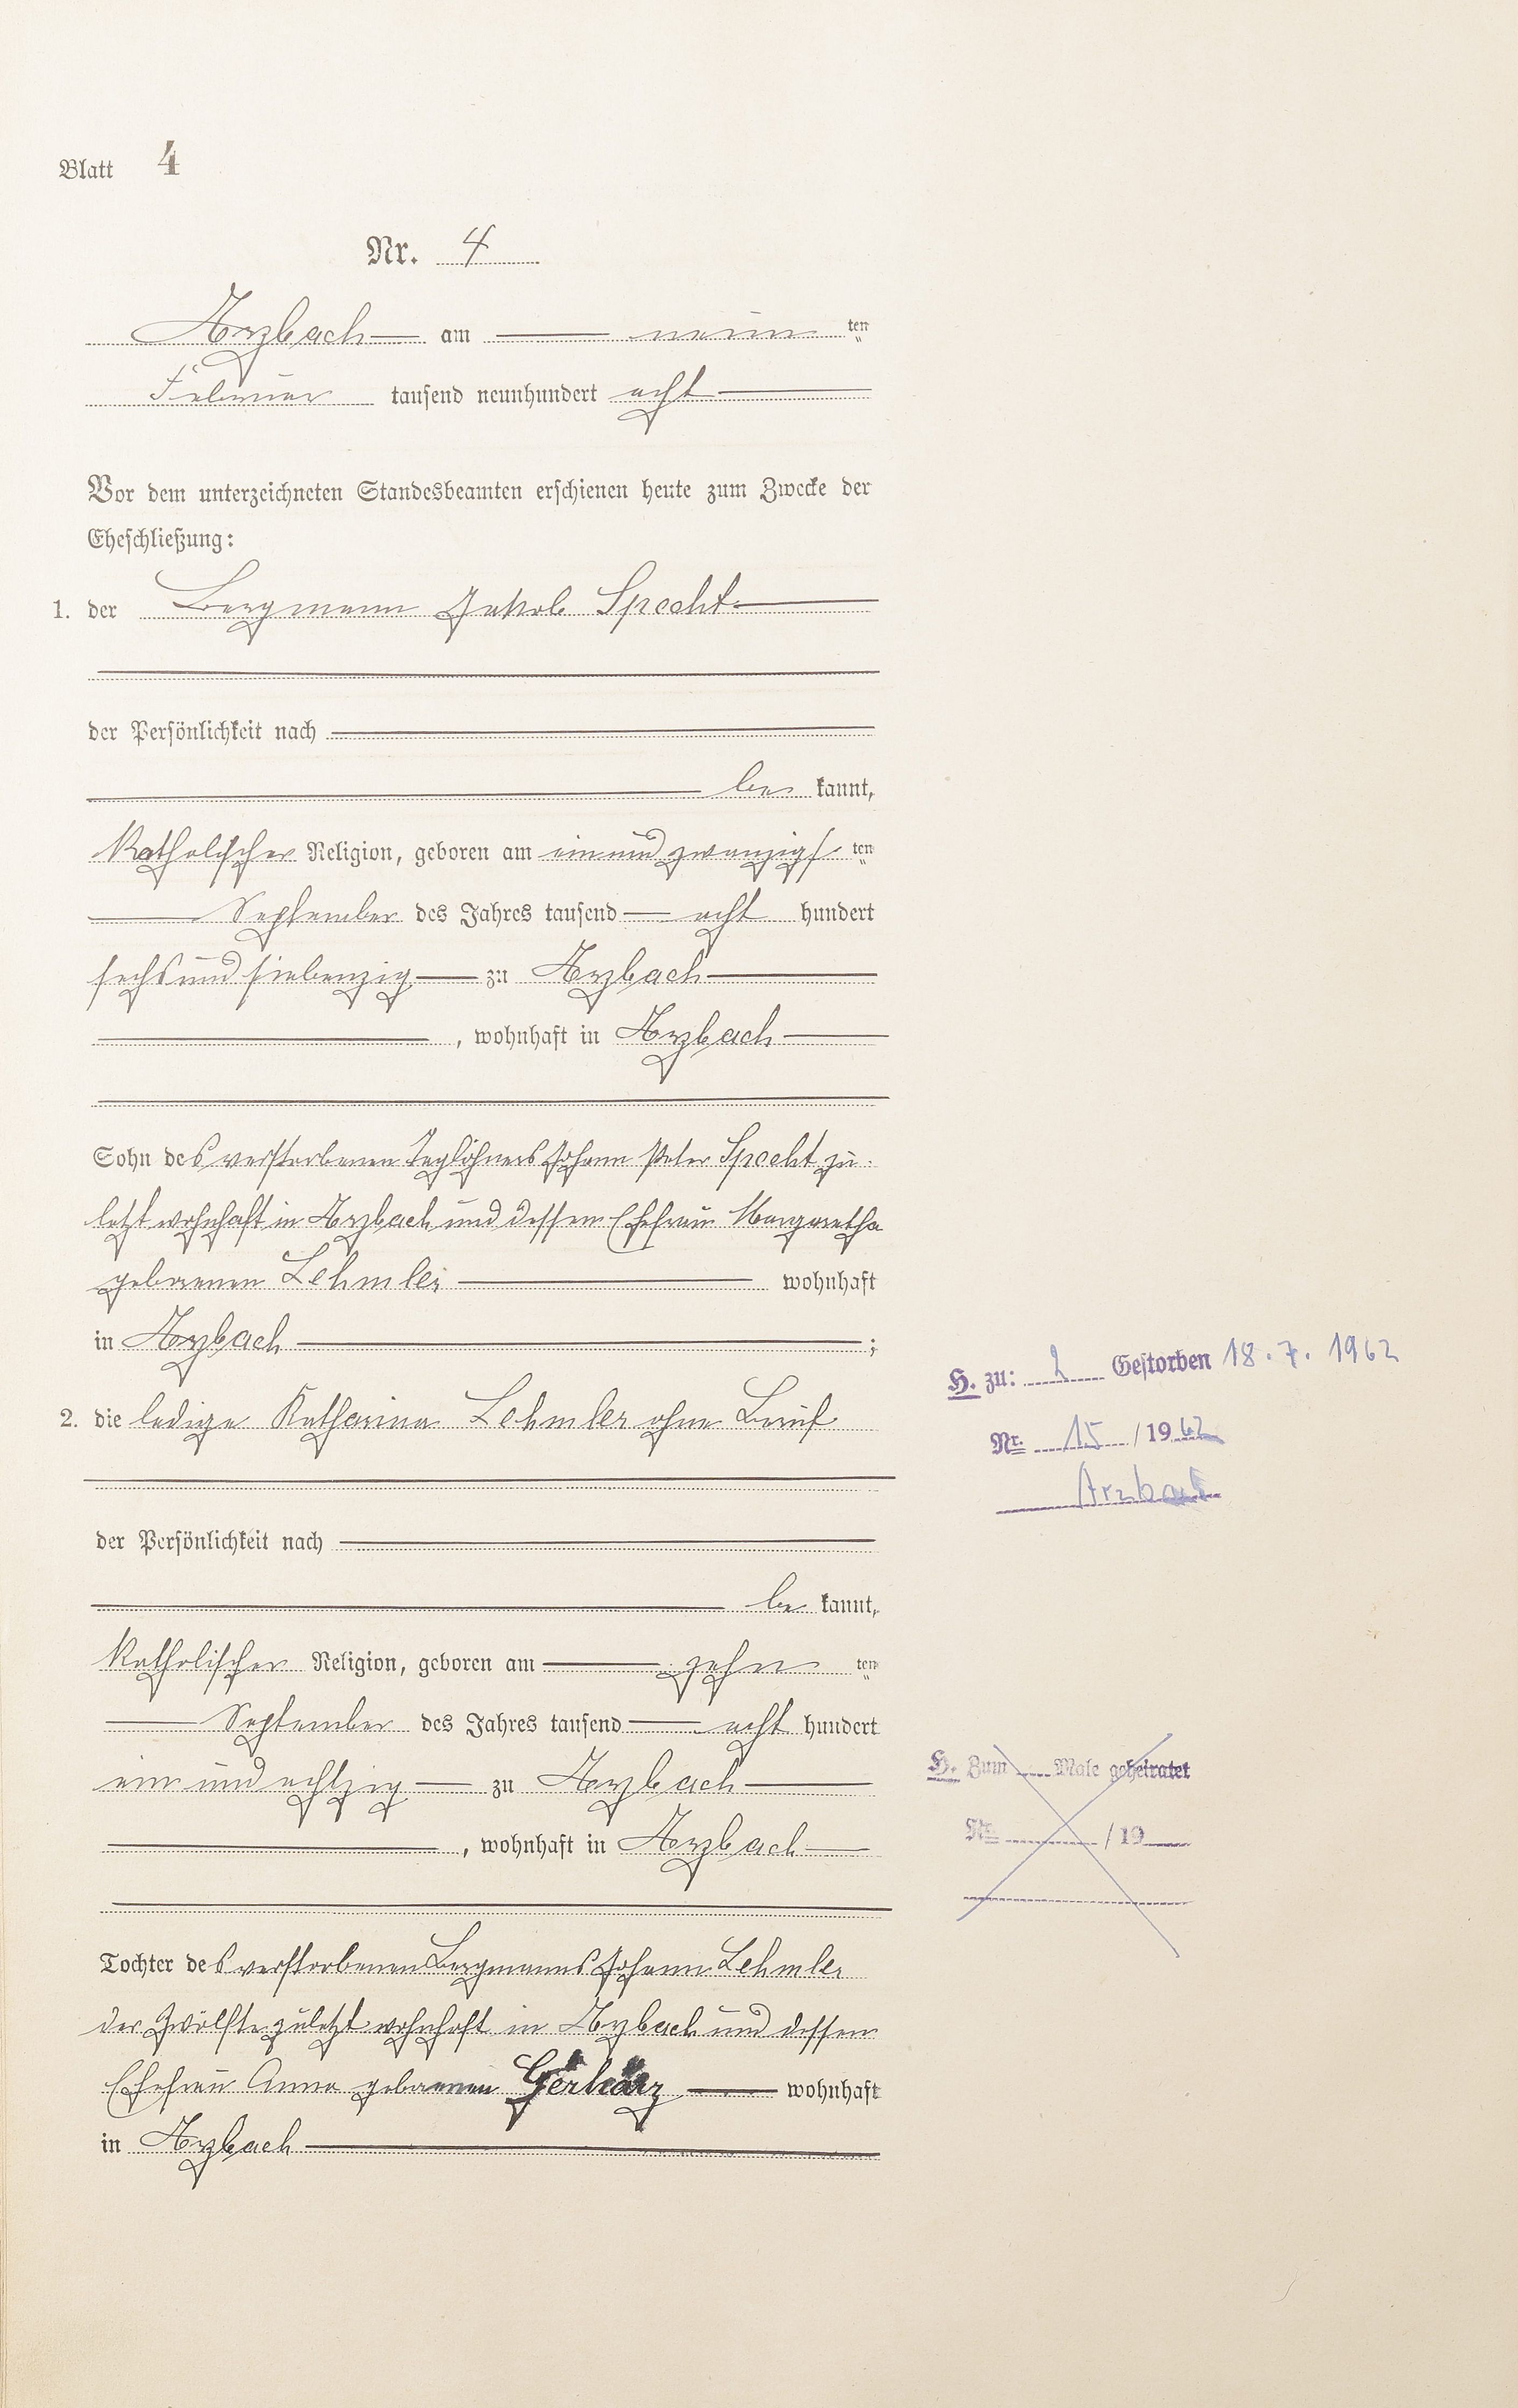 Blatt 4
Nr. 4
Arzbach am neun ten
Februar tausend neunhundert acht
Vor dem unterzeichneten Standesbeamten erschienen heute zum Zwecke der
Eheschließung:
1. der Bergmann Jakob Specht
der Persönlichkeit nach
be kannt,
katholischer Religion, geboren am einund zwanzigs ten
September des Jahres tausend acht hundert
sechsund siebenzig zu Arzbach
, wohnhaft in Arzbach
Sohn des verstorbenen Taglöhners Johann Peter Specht zu-
letzt wohnhaft in Arzbach und dessen Ehefrau Margaretha
geborenen Lehmler wohnhaft
in Arzbach ;
2. die ledige Katharina Lehmler ohne Beruf
der Persönlichkeit nach
be kannt,
katholischer Religion, geboren am zehn ten
September des Jahres tausend acht hundert
ein und achtzig zu Arzbach
, wohnhaft in Arzbach
Tochter des verstorbenen Bergmanns Johann Lehmler
der Zwölfte zuletzt wohnhaft in Arzbach und dessen
Ehefrau Anna geborenen Gerharz wohnhaft
in Arzbach
H. zu: 2 Gestorben 18.7.1962
Nr. 15 / 1962
Arzbach
H. Zum Male geheiratet
Nr. / 19